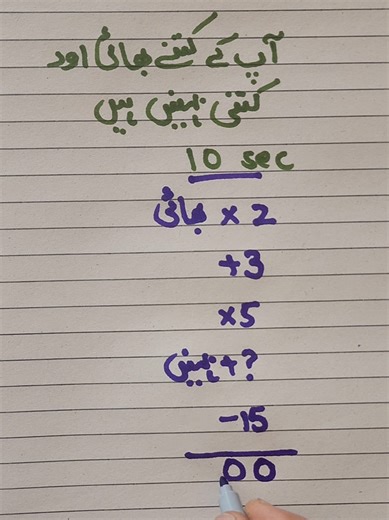 آپ کے کتنے بھائی اور
کتنی بہنیں ہیں
10 sec
بھائی × 2
+3
×5
؟ + بہنیں
−15
00